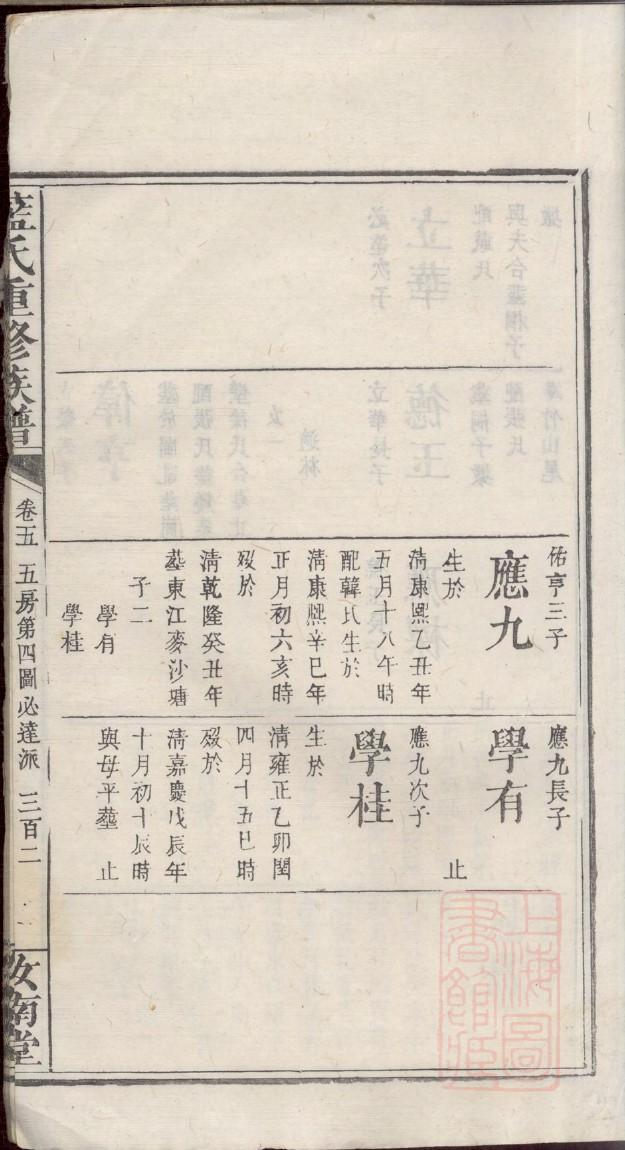 佑亨三子
應九
生於
清康熙乙丑年
五月十八午時
配韓氏生於
清康熙辛巳年
正月初六亥時
歿於
清乾隆癸丑年
塟東江麥沙塘
子二
學有
學桂
應九長子
學有
止
應九次子
學桂
生於
清雍正乙卯閏
四月十五巳時
歿於
清嘉慶戊辰年
十月初十辰時
與母平塟 止
藍氏重修族譜
卷五 五房第四圖必達派 三百二
汝南堂
上海圖
書館藏